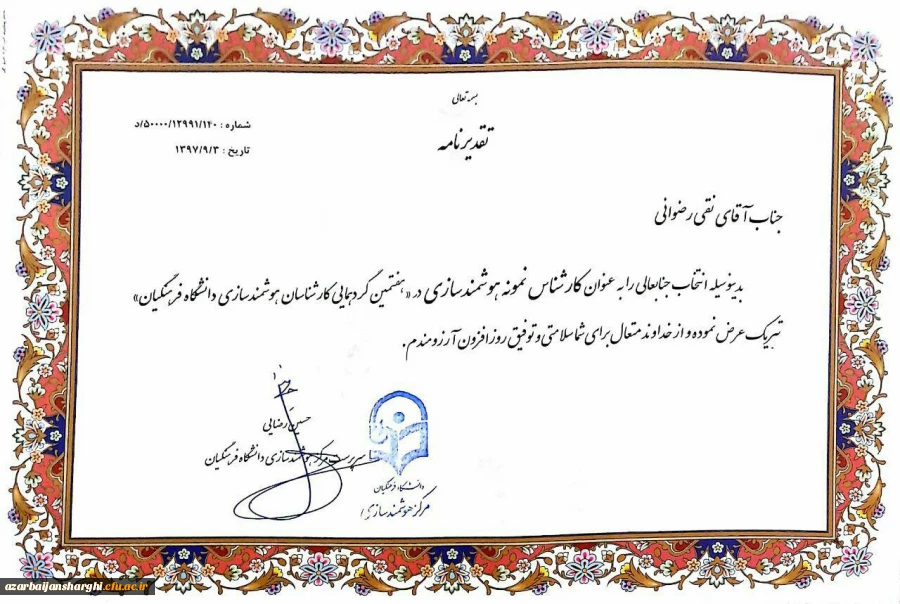 بسمه تعالی
شماره : ۵۰۰۰۰/۱۲۹۹۱/۱۴۰/د
تاریخ : ۱۳۹۷/۹/۳
تقدیرنامه
جناب آقای نقی رضوانی
بدینوسیله انتخاب جنابعالی را به عنوان کارشناس نمونه هوشمندسازی در «هفتمین گردهمایی کارشناسان هوشمندسازی دانشگاه فرهنگیان»
تبریک عرض نموده و از خداوند متعال برای شما سلامتی و توفیق روزافزون آرزومندم.
حسین رضایی
سرپرست مرکز هوشمندسازی دانشگاه فرهنگیان
دانشگاه فرهنگیان
مرکز هوشمندسازی
azarbaijansharghi.cfu.ac.ir